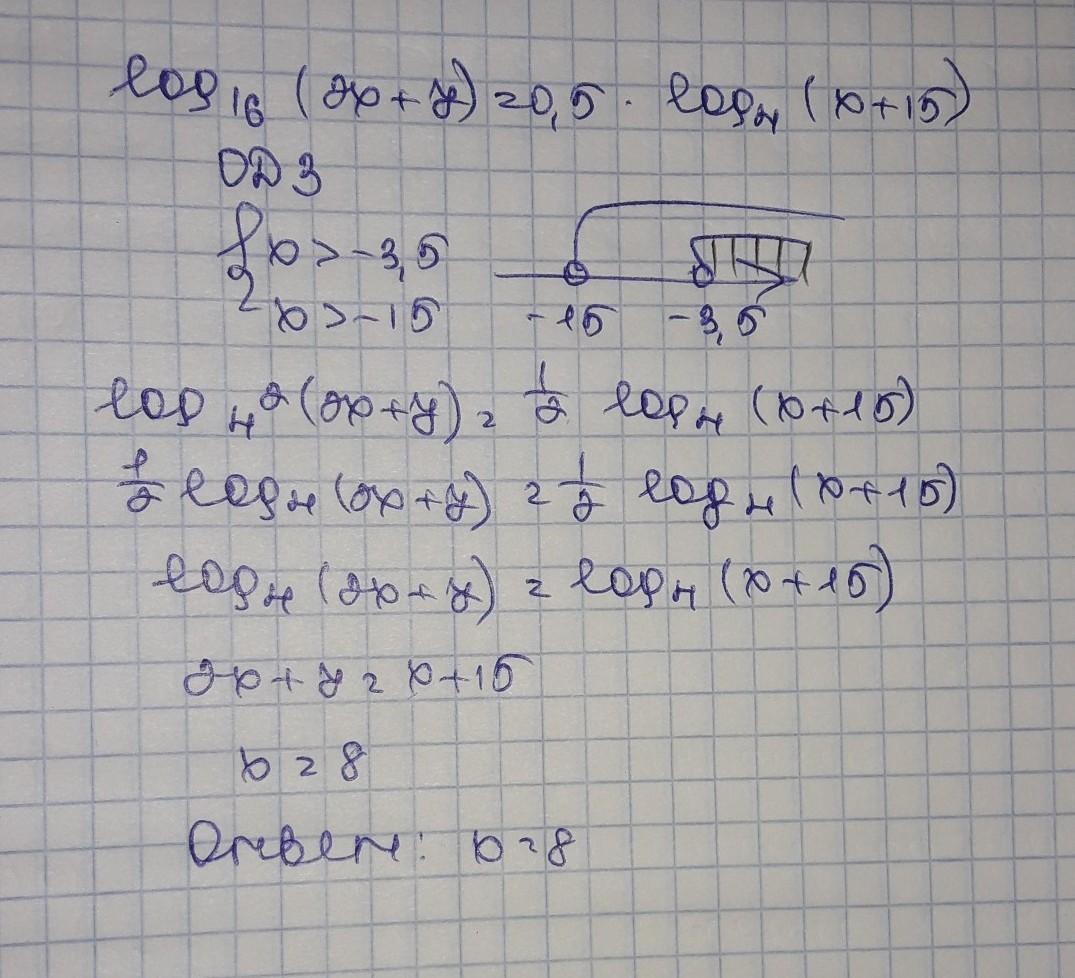 log₁₆ (2x+7) = 0,5 · log₄ (x+15)
ОДЗ
{ x > -3,5
x > -15
-15 -3,5
log₄² (2x+7) = 1/2 log₄ (x+15)
1/2 log₄ (2x+7) = 1/2 log₄ (x+15)
log₄ (2x+7) = log₄ (x+15)
2x+7 = x+15
x = 8
Ответ: x = 8